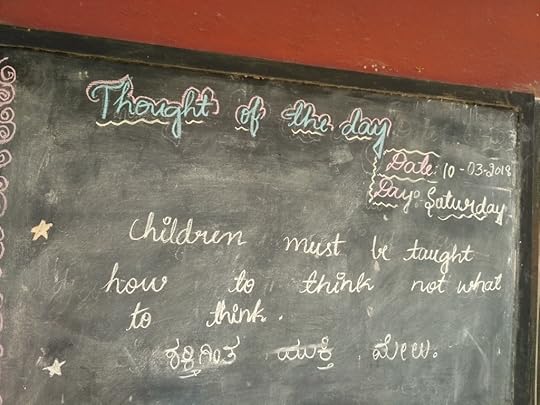 Thought of the day
Date: 10-03-2018
Day: Saturday
Children must be taught
how to think not what
to think.
ಶಕ್ತಿಗಿಂತ ಯುಕ್ತಿ ಮೇಲು.